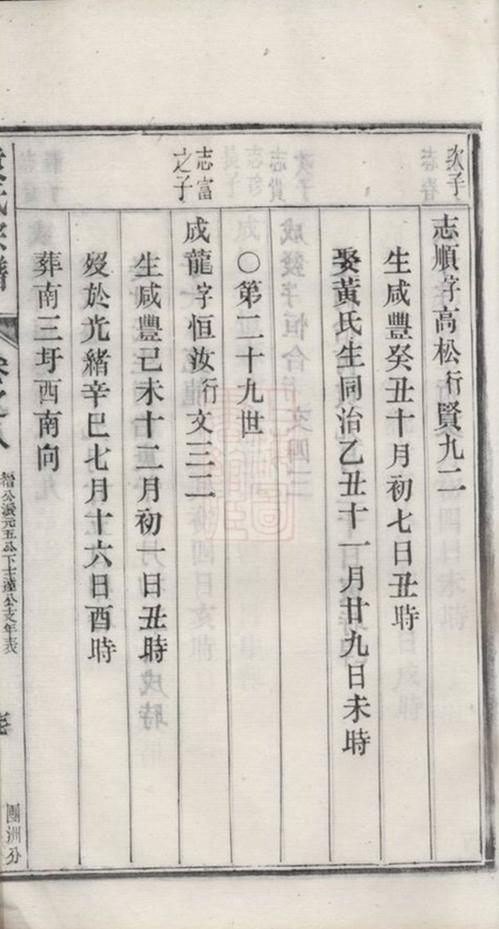 次子
志順字高松行賢九二
生咸豐癸丑十月初七日丑時
娶黃氏生同治乙丑十一月廿九日未時
○第二十九世
志富之子
成龍字恒汝行文三二
生咸豐己未十二月初一日丑時
歿於光緒辛巳七月十六日酉時
葬南三圩西南向
卷之八
團洲分